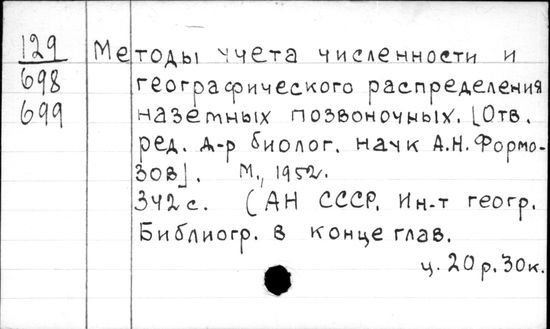 129 Методы учета численности и
698 географического распределения
699 наземных позвоночных. [Отв.
ред. д-р биолог. наук А.Н. Формо-
зов]. М., 1952.
342 с. (АН СССР. Ин-т геогр.
Библиогр. в конце глав.
ц. 20 р. 30 к.